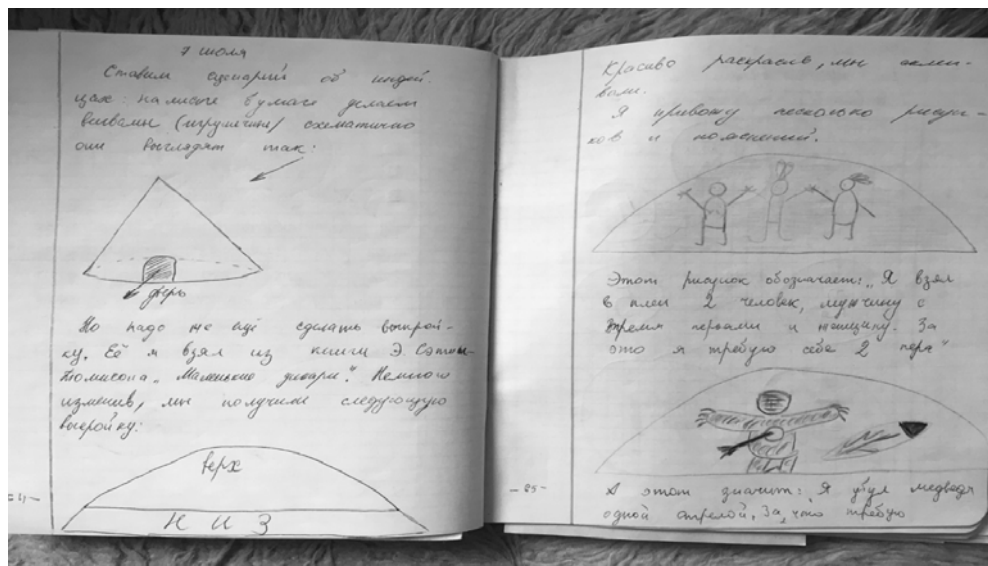 7 июля
Ставим сценарий об индей-
цах: на листе бумаги делаем
вигвамы (игрушечные) схематично
они выглядят так:
дверь
Но надо же ещё сделать выкрой-
ку. Её я взял из книги Э. Сэтон-
Томпсона „Маленькие дикари". Немного
изменив, мы получили следующую
выкройку:
верх
НИЗ
Красиво раскрасив, мы склеи-
вали.
Я привожу несколько рисун-
ков и пояснений.
Этот рисунок обозначает: „Я взял
в плен 2 человек, мужчину с
тремя перьями и женщину. За
это я требую себе 2 пера"
- 25 -
А этот значит: „Я убил медведя
одной стрелой. За, что требую